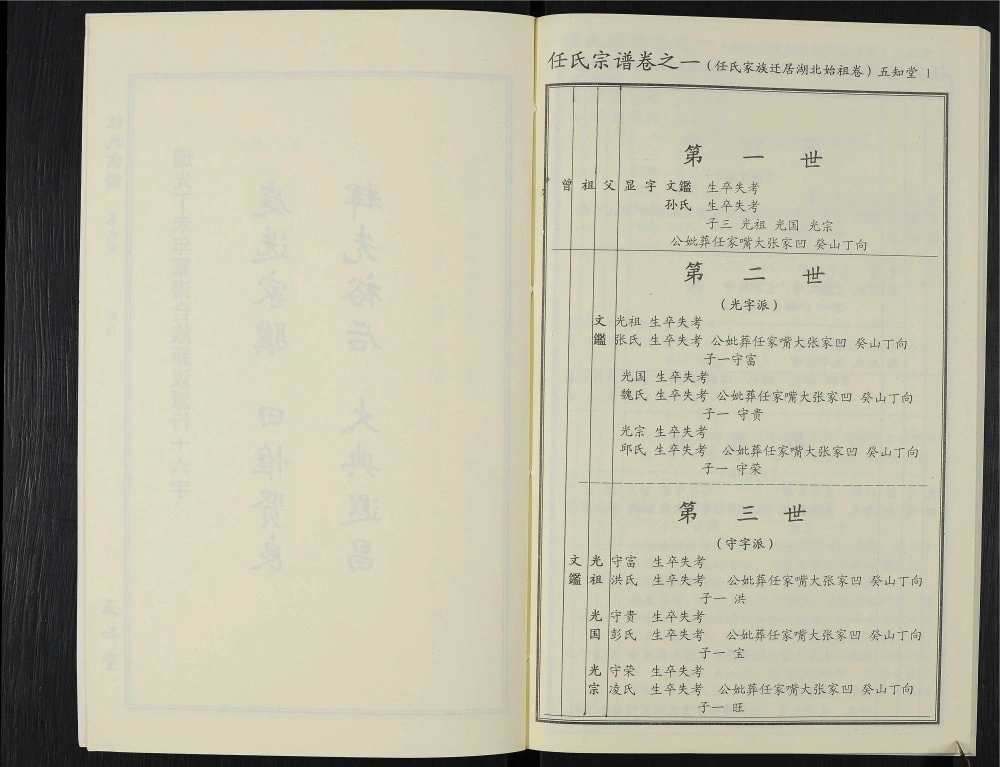 任氏宗谱卷之一（任氏家族迁居湖北始祖卷）五知堂 1
第一世
曾祖父显字文鑑 生卒失考
孙氏 生卒失考
子三 光祖 光国 光宗
公妣葬任家嘴大张家凹 癸山丁向
第二世
（光字派）
文 光祖 生卒失考
鑑 张氏 生卒失考 公妣葬任家嘴大张家凹 癸山丁向
子一守富
光国 生卒失考
魏氏 生卒失考 公妣葬任家嘴大张家凹 癸山丁向
子一 守贵
光宗 生卒失考
邱氏 生卒失考 公妣葬任家嘴大张家凹 癸山丁向
子一 守荣
第三世
（守字派）
文 光 守富 生卒失考
鑑 祖 洪氏 生卒失考 公妣葬任家嘴大张家凹 癸山丁向
子一 洪
光 守贵 生卒失考
国 彭氏 生卒失考 公妣葬任家嘴大张家凹 癸山丁向
子一 宝
光 守荣 生卒失考
宗 凌氏 生卒失考 公妣葬任家嘴大张家凹 癸山丁向
子一 旺